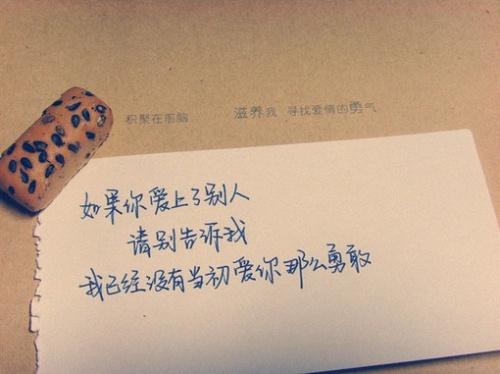 积聚在前胸 滋养我 寻找爱情的勇气
如果你爱上了别人
请别告诉我
我已经没有当初爱你那么勇敢